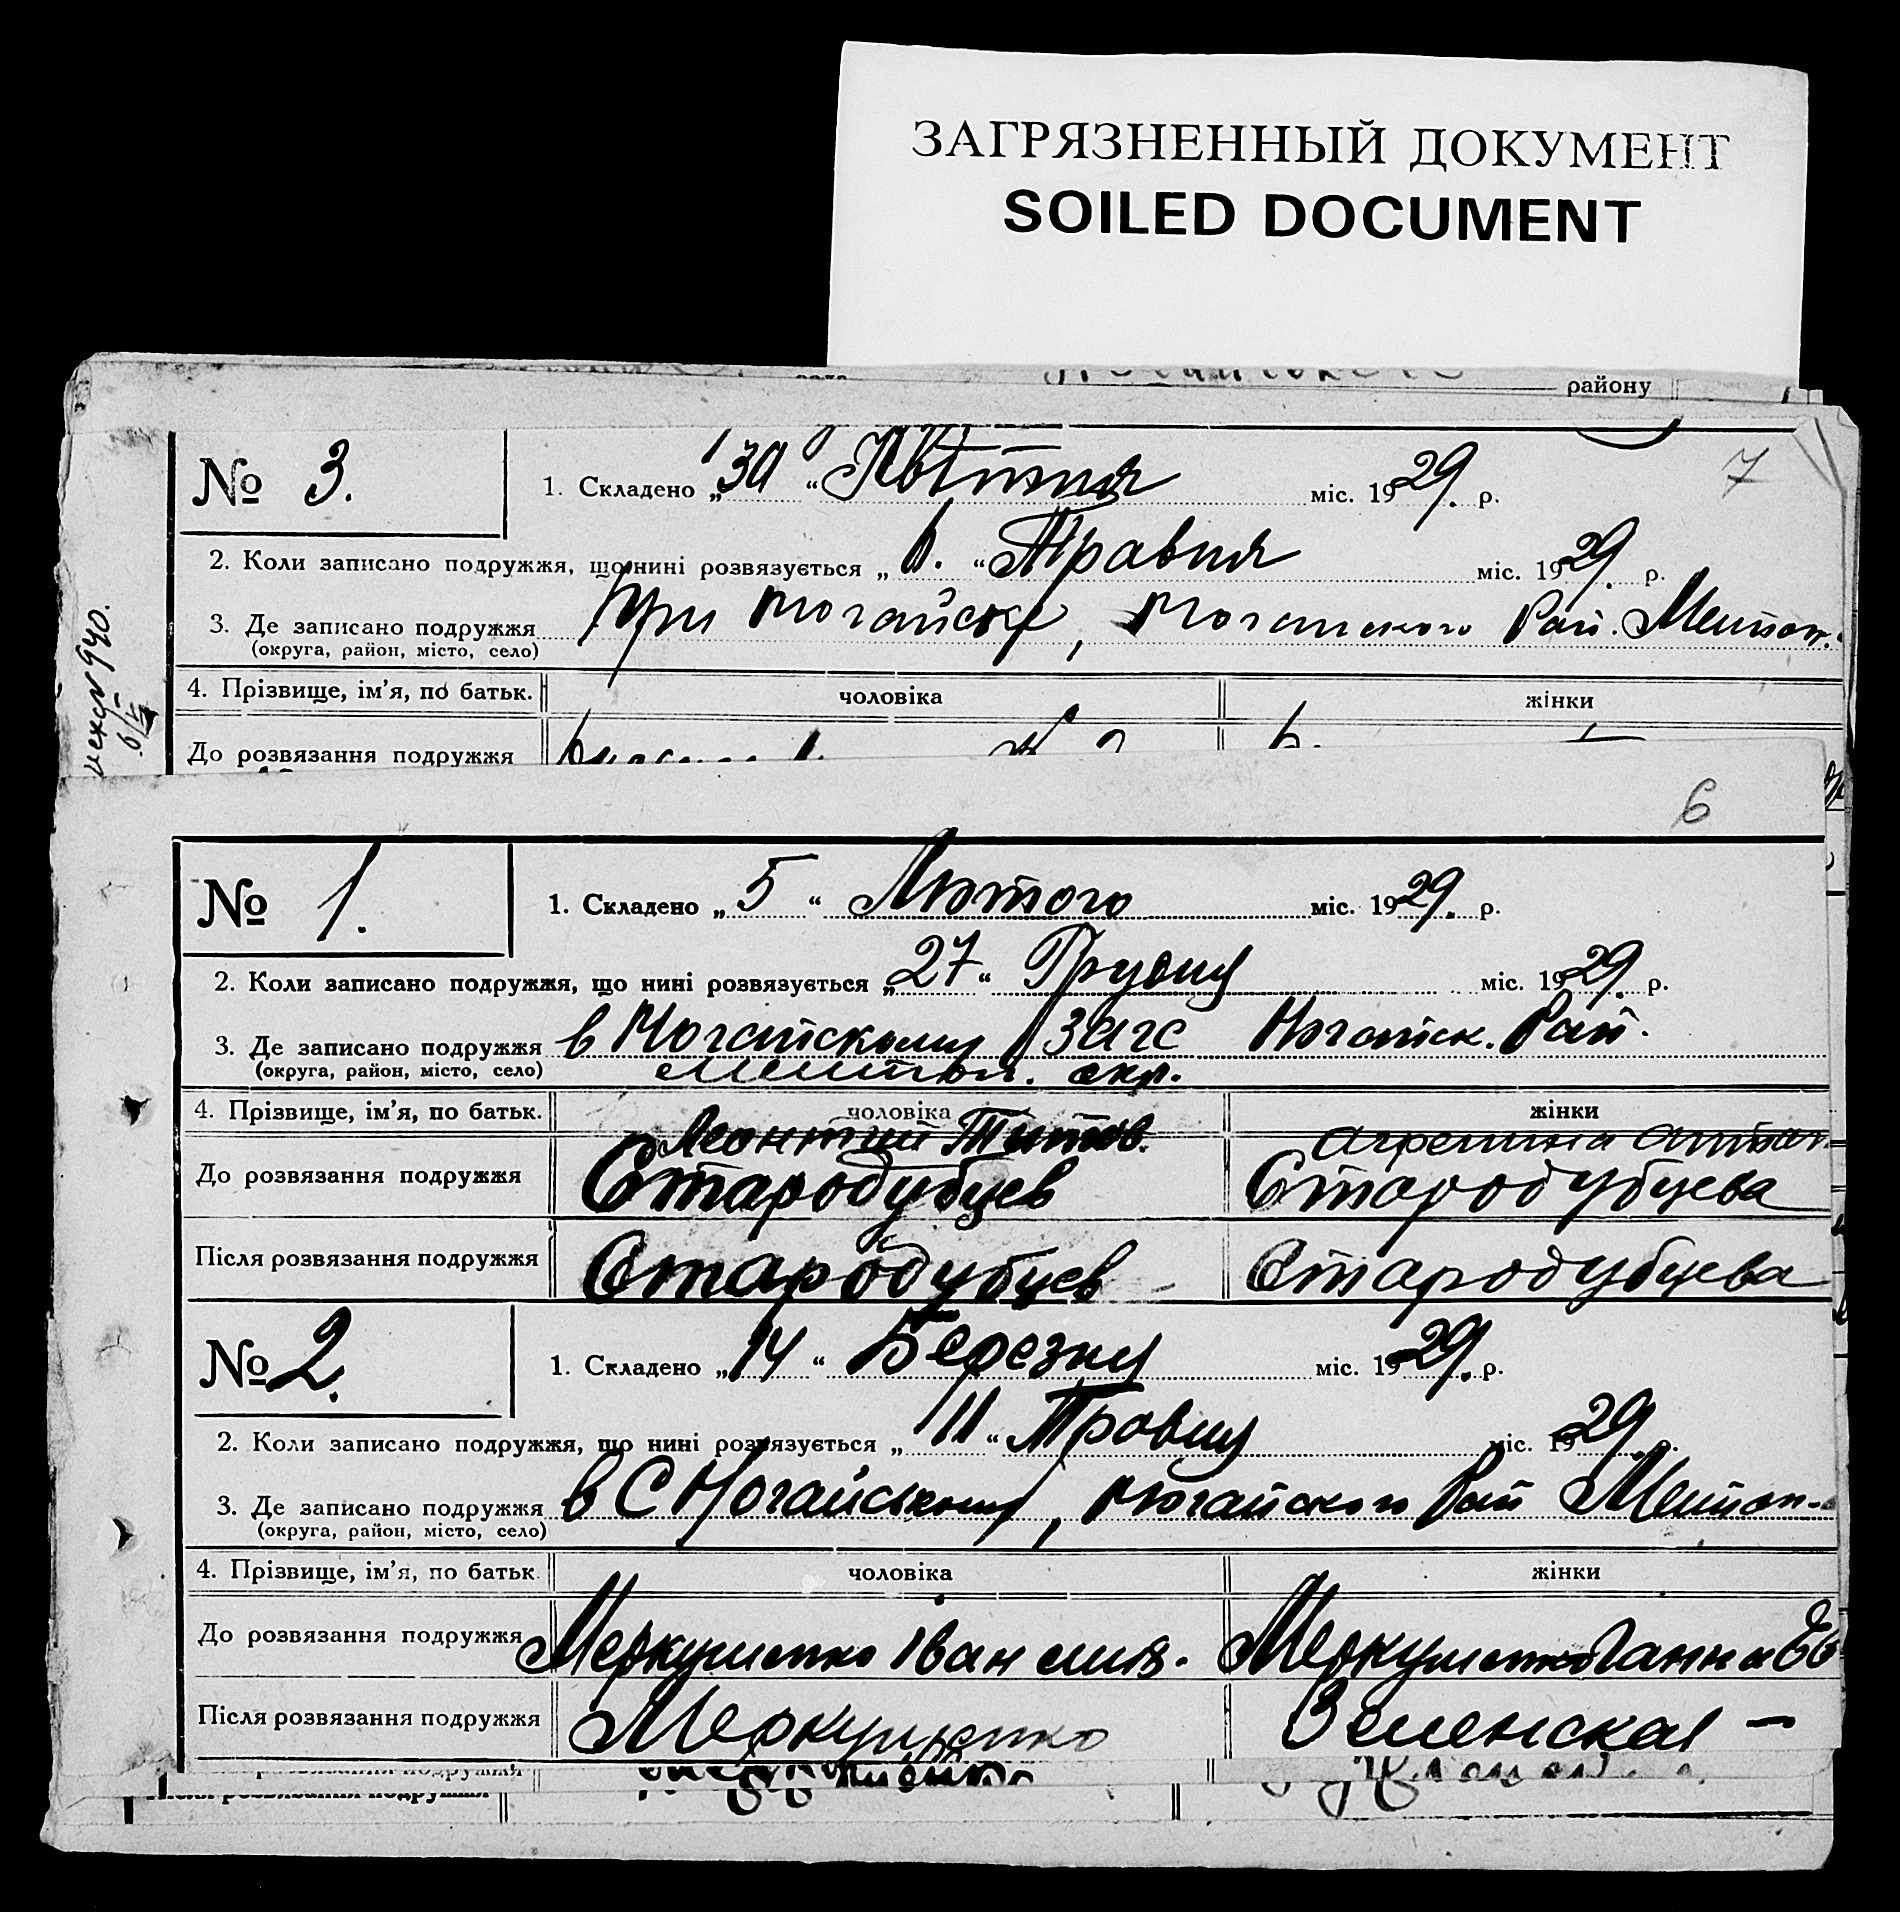 ЗАГРЯЗНЕННЫЙ ДОКУМЕНТ
SOILED DOCUMENT
району
7
№ 3. 1. Складено „30“ Квітня міс. 1929. р.
2. Коли записано подружжя, що нині розвязується „6.“ Травня міс. 1929. р.
3. Де записано подружжя при Ногайське, Ногайського Рай. Мелітоп.
(округа, район, місто, село)
4. Прізвище, ім’я, по батьк. чоловіка жінки
До розвязання подружжя
6
№ 1. 1. Складено „5“ Лютого міс. 1929. р.
2. Коли записано подружжя, що нині розвязується „27“ Грудня міс. 1929. р.
3. Де записано подружжя в Ногайському ЗАГС Ногайск. Рай.
(округа, район, місто, село) Мелітоп. окр.
4. Прізвище, ім’я, по батьк. чоловіка жінки
Леонтий Титов.
До розвязання подружжя Стародубцев Стародубцева
Після розвязання подружжя Стародубцев Стародубцева
№ 2. 1. Складено „14“ Березня міс. 1929. р.
2. Коли записано подружжя, що нині розвязується „11“ Травня міс. 1929 р.
3. Де записано подружжя в С Ногайському, Ногайского Рай Мелітоп.
(округа, район, місто, село)
4. Прізвище, ім’я, по батьк. чоловіка жінки
До розвязання подружжя Меркушенко Іван Меркушенко Ганна
Після розвязання подружжя Меркушенко Зеленская —